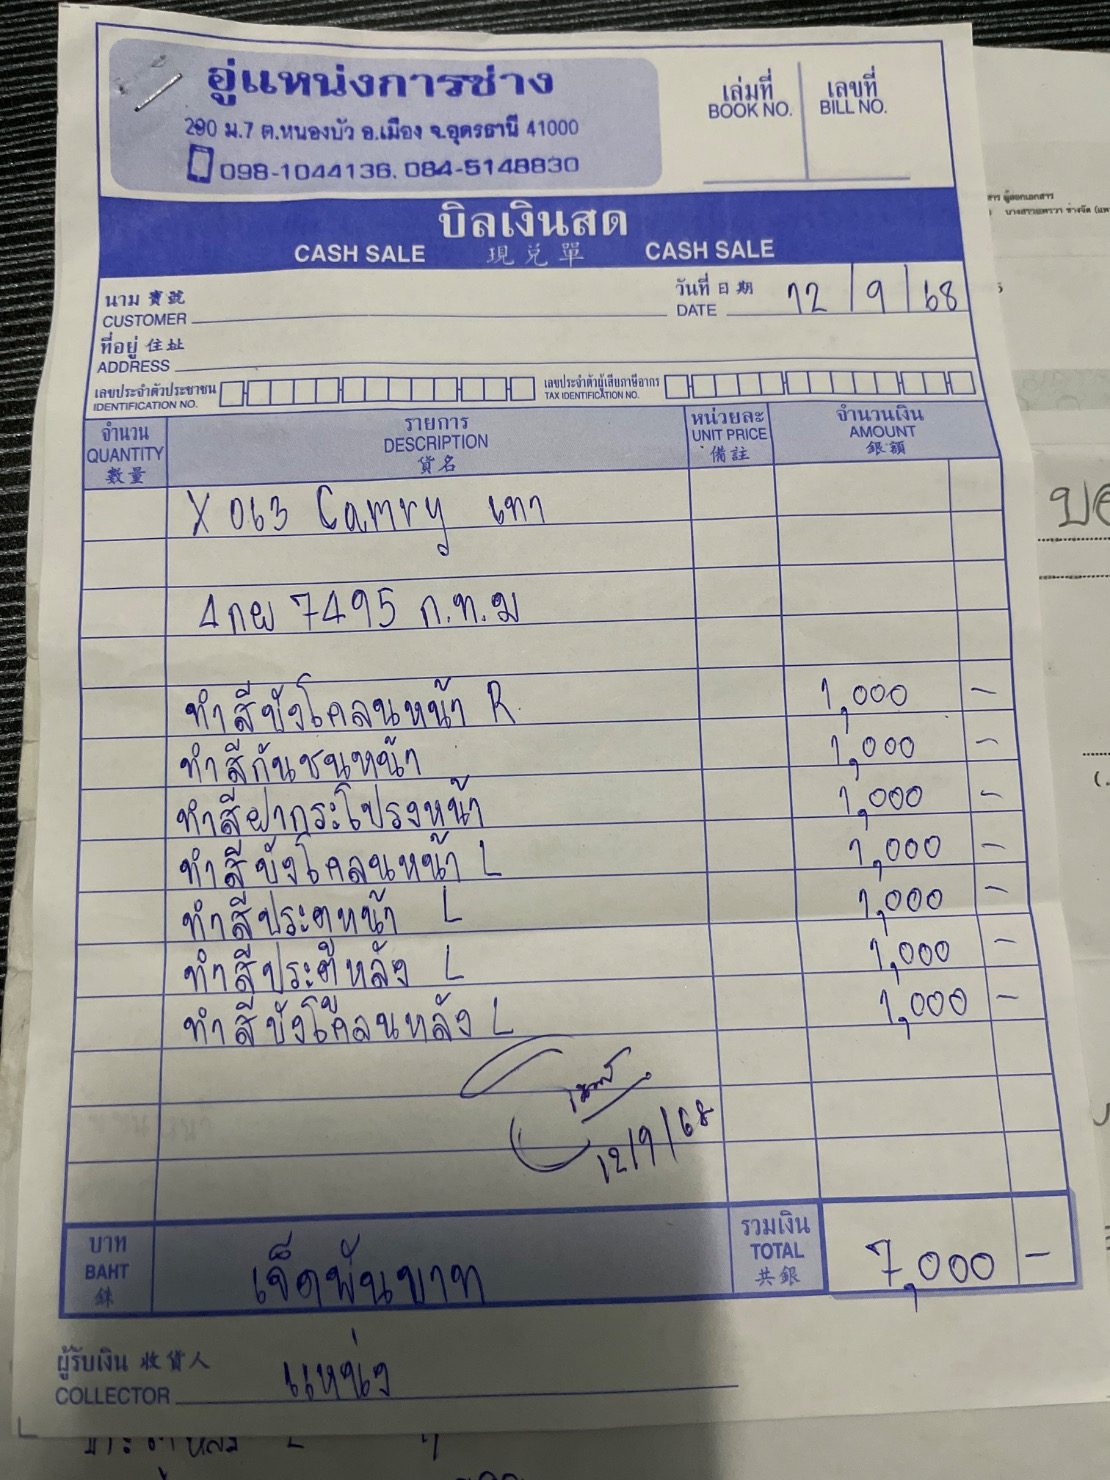 อู่แหน่งการช่าง
290 ม.7 ต.หนองบัว อ.เมือง จ.อุดรธานี 41000
098-1044136, 084-5148830
เล่มที่ เลขที่
BOOK NO. BILL NO.
บิลเงินสด
CASH SALE 現兌單 CASH SALE
นาม 寶號
CUSTOMER
วันที่ 日期
DATE 12/9/68
ที่อยู่ 住址
ADDRESS
เลขประจำตัวประชาชน
IDENTIFICATION NO.
เลขประจำตัวผู้เสียภาษีอากร
TAX IDENTIFICATION NO.
จำนวน รายการ หน่วยละ จำนวนเงิน
QUANTITY DESCRIPTION UNIT PRICE AMOUNT
數量 貨名 備註 銀額
X 063 Camry เทา
4กผ 7495 ก.ท.ม
ทำสีบังโคลนหน้า R 1,000 -
ทำสีกันชนหน้า 1,000 -
ทำสีฝากระโปรงหน้า 1,000 -
ทำสีบังโคลนหน้า L 1,000 -
ทำสีประตูหน้า L 1,000 -
ทำสีประตูหลัง L 1,000 -
ทำสีบังโคลนหลัง L 1,000 -
12/9/68
บาท
BAHT
銖
เจ็ดพันบาท
รวมเงิน
TOTAL
共銀
7,000 -
ผู้รับเงิน 收貨人
COLLECTOR แหน่ง